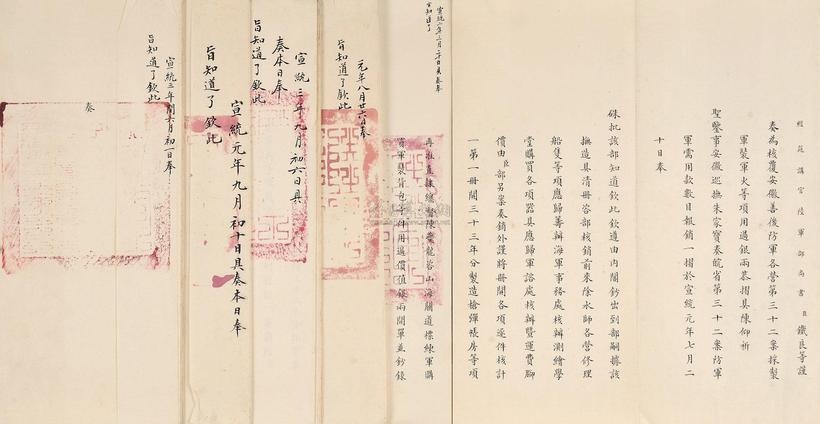 經筵講官陸軍部尚書臣鐵良等謹
奏為核覆安徽善後防軍各營第三十二案採製
軍裝軍火等項用過銀兩恭摺具陳仰祈
聖鑒事安徽巡撫朱家寶奏皖省第三十二案防軍
軍需用款數目報銷一摺於宣統元年七月二
十日奉
硃批該部知道欽此欽遵由內閣鈔出到部嗣據該
撫造具清冊咨部核銷前來除水師各營修理
船隻等項應歸籌辦海軍事務處核辦測繪學
堂購買各項器具應歸軍諮處核辦暨運費腳
價由臣部另案奏銷外謹將冊開各項逐件核計
一第一冊開三十三年分製造槍彈帳房等項
再准直隸總督陳夔龍咨山海關道標練軍購
軍裝背包等件用過價值銀兩開單並鈔錄
宣統二年三月二十日具奏奉
旨知道了
元年八月廿六日奉
旨知道了欽此
宣統三年九月初六日具
奏本日奉
旨知道了欽此
宣統元年九月初十日具奏本日奉
旨知道了欽此
宣統三年閏六月初一日奉
旨知道了欽此
奏